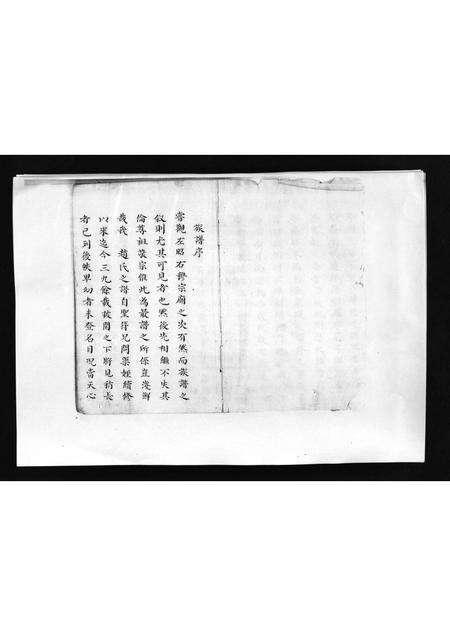 族譜序
嘗觀左昭右穆宗廟之次有然而族譜之
叙則尤其可見者也然後先相繼不失其
倫尊祖敬宗惟此為最譜之所係豈淺鮮
哉我 趙氏之譜自聖得兄問渠姪續修
以來迄今三九餘載披閱之下將見稍長
者已到後收卑幼者未登名目況當天心